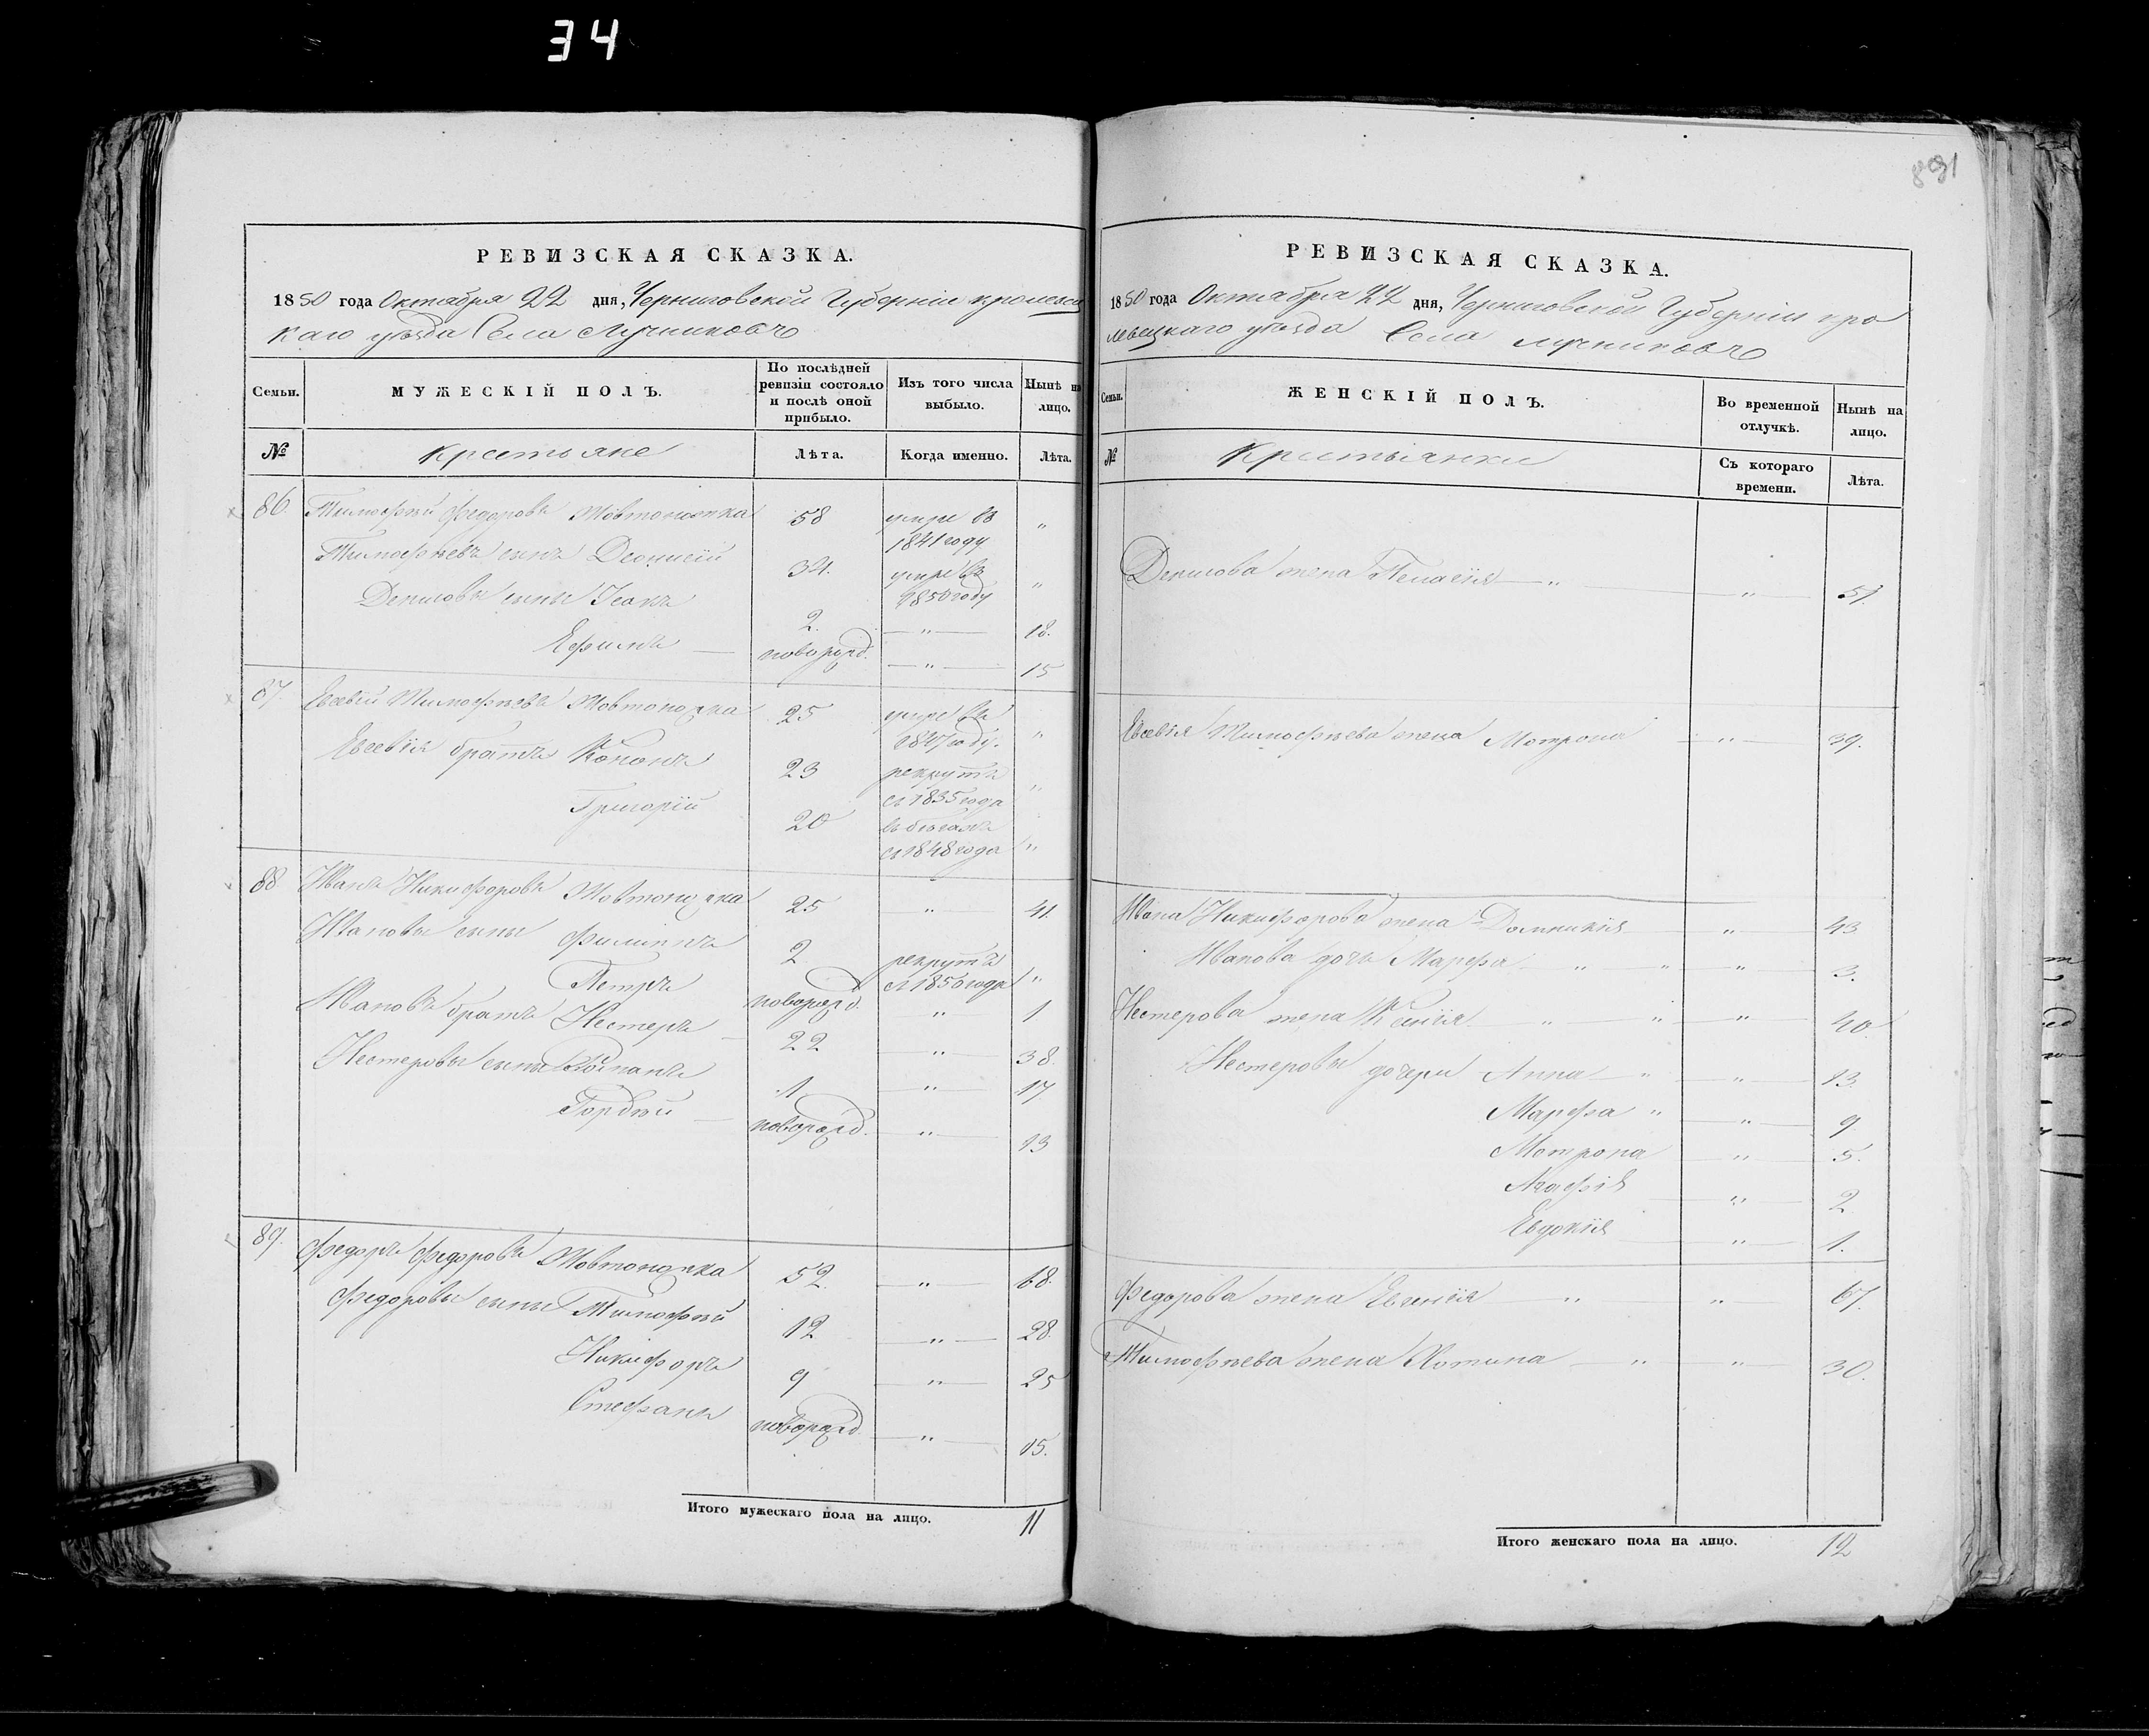 34
891
РЕВИЗСКАЯ СКАЗКА.
1850 года Октября 22 дня, Черниговской Губерніи кролевец
каго уѣзда Села Лучниковъ
Семьи. МУЖЕСКІЙ ПОЛЪ. По послѣдней ревизіи состояло и послѣ оной прибыло. Изъ того числа выбыло. Нынѣ на лицо.
№ Крестьяне Лѣта. Когда именно. Лѣта.
86 Тимофѣй Федоровъ Жовтоножка 58 умре въ 1841 году "
Тимофѣевъ сынъ Деонисій 34. умре въ 1850 году "
Денисовы сыны Исакъ 2. " 18.
Ефимъ новорожд. " 15
87. Евсевій Тимофѣевъ Жовтоножка 25 умре въ 1847 году. "
Евсевія братъ Кононъ 23 рекрутъ съ 1835 года "
Григорій 20 въ бѣгахъ съ 1848 года "
88 Иванъ Никифоровъ Жовтоножка 25 " 41.
Ивановы сыны Филиппъ 2 рекрутъ съ 1850 года "
Петръ новорожд. " 1
Ивановъ братъ Нестеръ 22 " 38.
Нестеровы сыны Романъ 1 " 17
Гордѣй новорожд. " 13
89. Федоръ Федоровъ Жовтоножка 52 " 68.
Федоровы сыны Тимофѣй 12 " 28.
Никифоръ 9 " 25
Стефанъ новорожд. " 15.
Итого мужескаго пола на лицо. 11
РЕВИЗСКАЯ СКАЗКА.
1850 года Октября 22 дня, Черниговской Губерніи кро
левецкаго уѣзда Села Лучниковъ
Семьи. ЖЕНСКІЙ ПОЛЪ. Во временной отлучкѣ. Нынѣ на лицо.
№ Крестьянки Съ котораго времени. Лѣта.
Денисова жена Пелагія " " 51.
Евсевія Тимофѣева жена Мотрона " 39.
Ивана Никифорова жена Домникія " 43
Иванова дочь Марфа " " " 3.
Нестерова жена Ксенія " " " 40
Нестеровы дочери Анна " " 13.
Марфа " " 9
Мотрона " 5.
Агафія " 2
Евдокія " 1.
Федорова жена Евгенія " " 67.
Тимофѣева жена Хотина " " 30.
Итого женскаго пола на лицо. 12